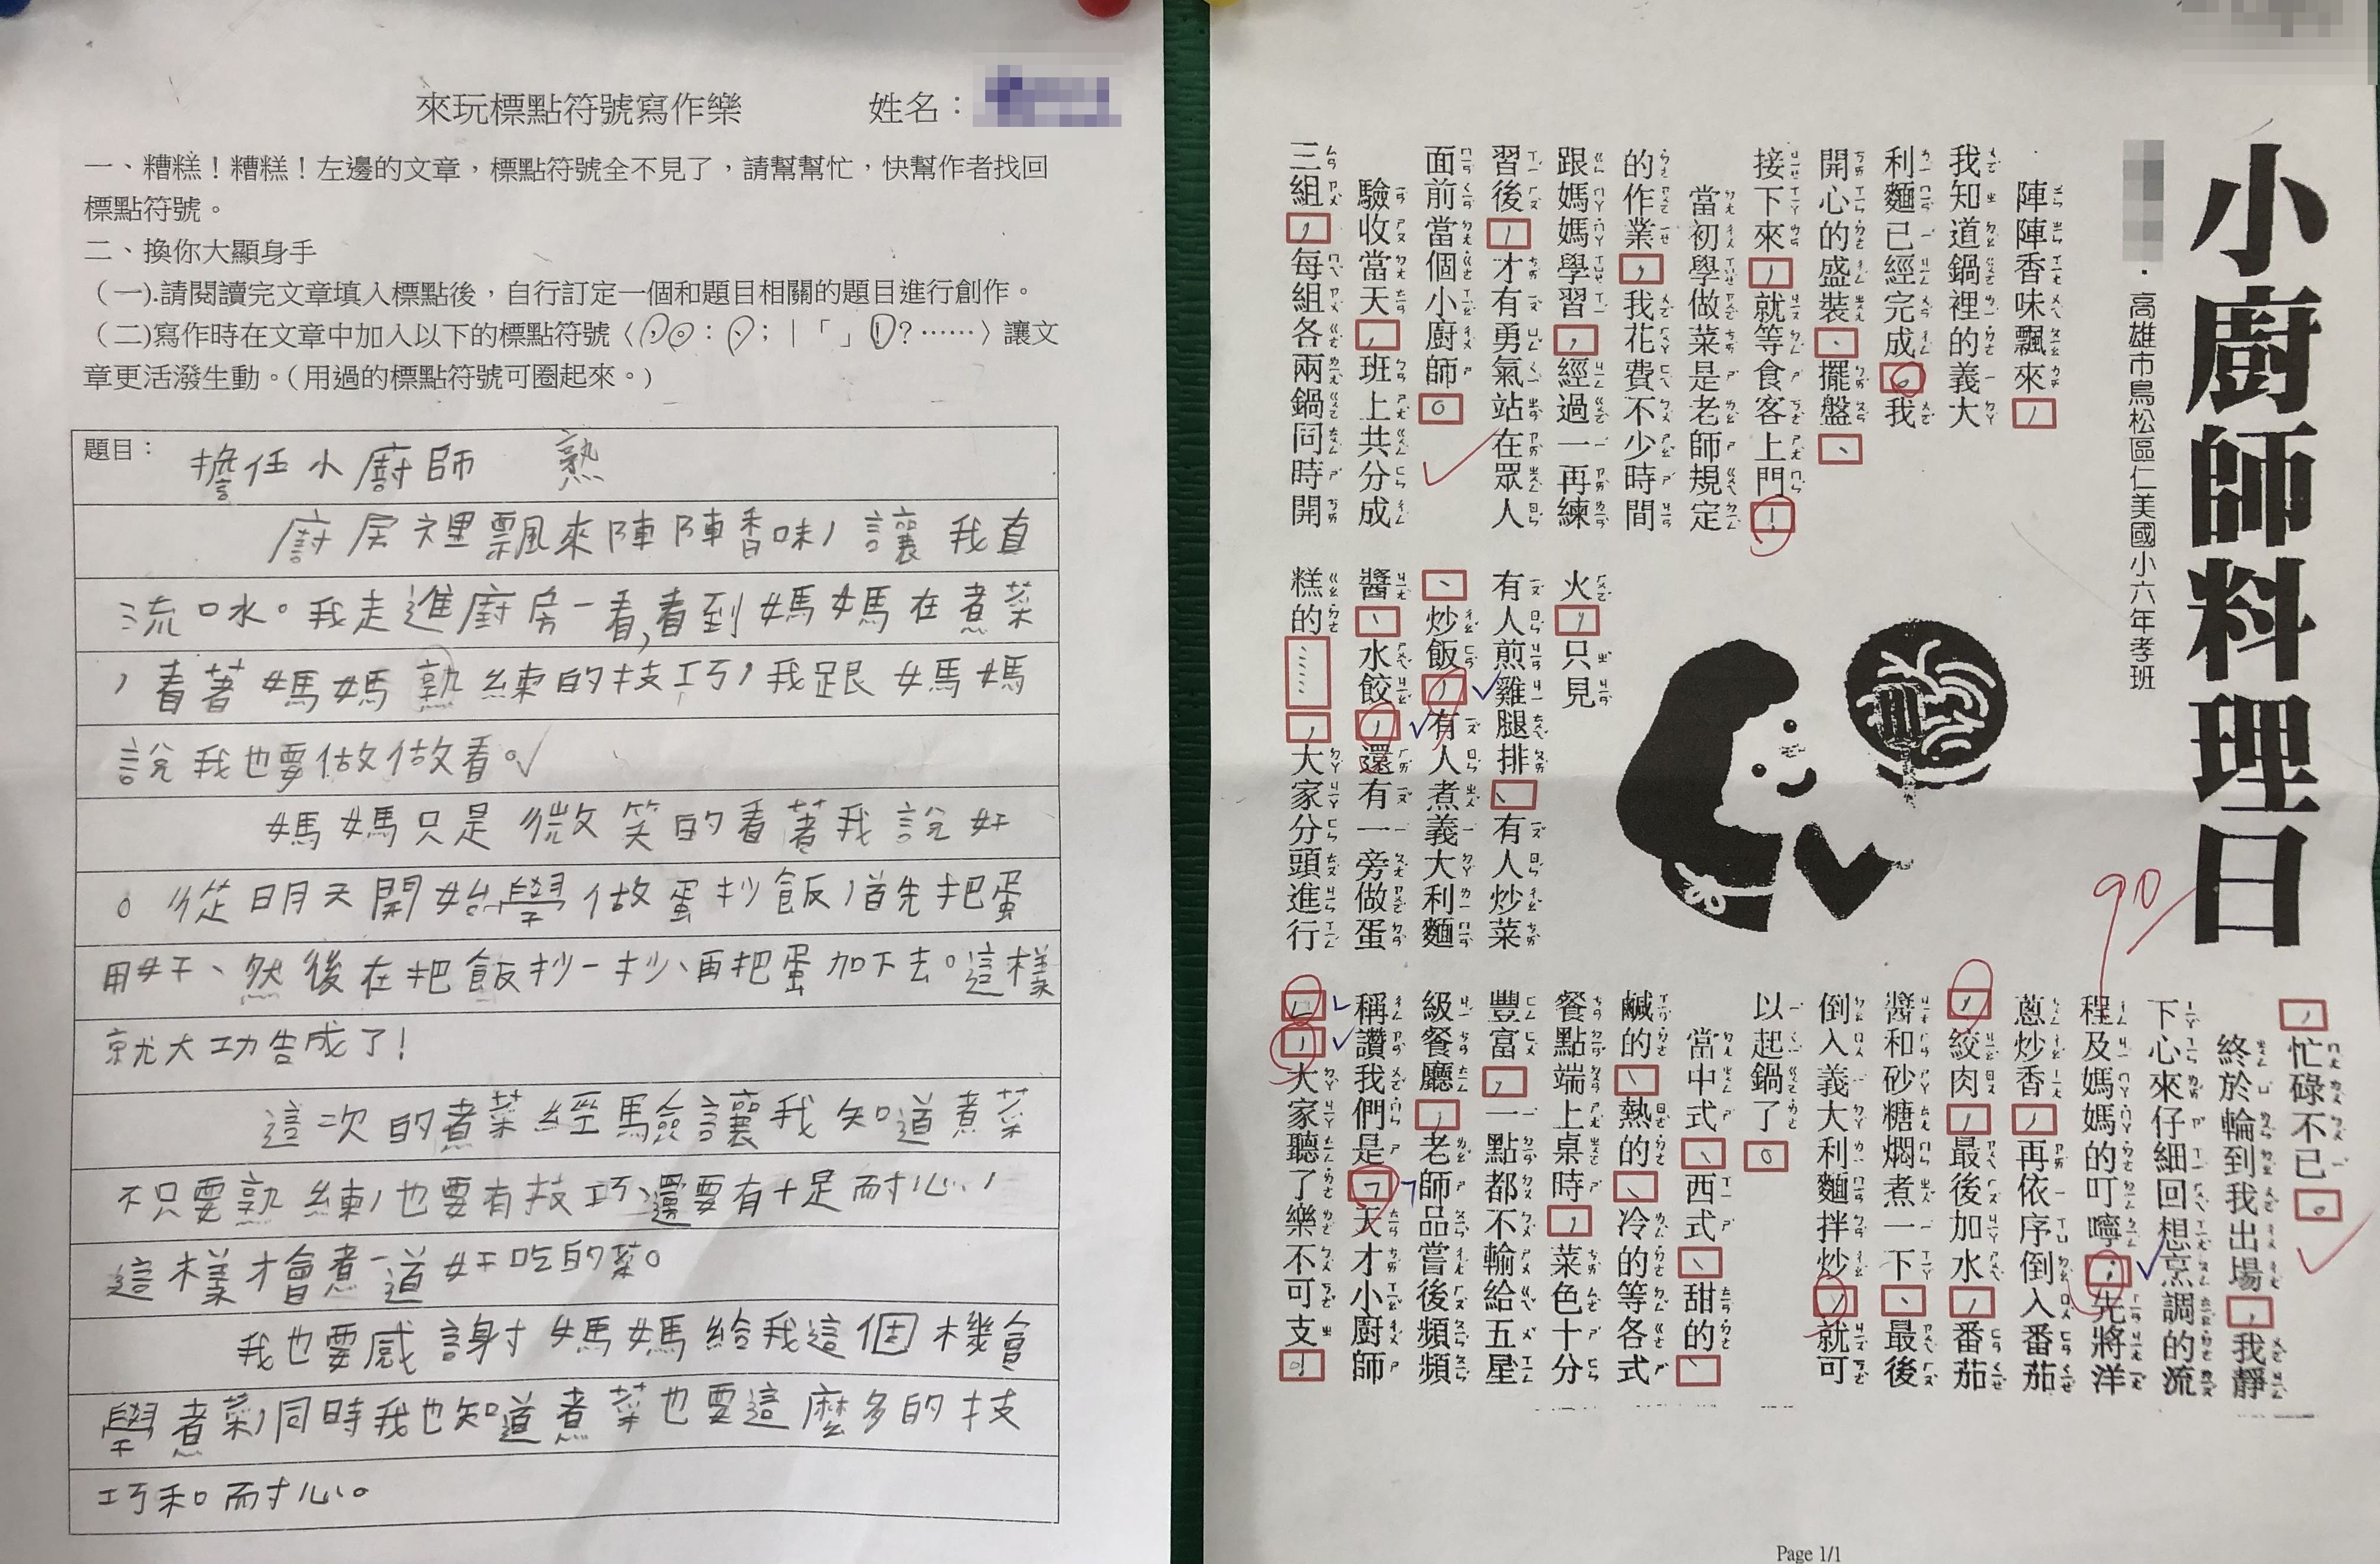 來玩標點符號寫作樂
姓名：
一、糟糕！糟糕！左邊的文章，標點符號全不見了，請幫幫忙，快幫作者找回
標點符號。
二、換你大顯身手
（一).請閱讀完文章填入標點後，自行訂定一個和題目相關的題目進行創作。
（二)寫作時在文章中加入以下的標點符號〈，。：、；｜「」！？……〉讓文
章更活潑生動。（用過的標點符號可圈起來。）
題目：擔任小廚師 熟
廚房裡飄來陣陣香味，讓我直
流口水。我走進廚房一看，看到媽媽在煮菜
，看著媽媽熟練的技巧，我跟媽媽
說我也要做做看。
媽媽只是微笑的看著我說好
。從明天開始學做蛋抄飯，首先把蛋
用好、然後在把飯抄一抄、再把蛋加下去。這樣
就大功告成了！
這次的煮菜經驗讓我知道煮菜
不只要熟練，也要有技巧、還要有十足耐心，
這樣才會煮一道好吃的菜。
我也要感謝媽媽給我這個機會
學煮菜，同時我也知道煮菜也要這麼多的技
巧和耐心。
小廚師料理日
．高雄市鳥松區仁美國小六年孝班
90
陣陣香味飄來，
我知道鍋裡的義大
利麵已經完成。我
開心的盛裝、擺盤、
接下來，就等食客上門！
當初學做菜是老師規定
的作業，我花費不少時間
跟媽媽學習，經過一再練
習後，才有勇氣站在眾人
面前當個小廚師。
驗收當天，班上共分成
三組，每組各兩鍋同時開
火，只見
有人煎雞腿排、有人炒菜
、炒飯，有人煮義大利麵
醬、水餃，還有一旁做蛋
糕的……，大家分頭進行
，忙碌不已。
終於輪到我出場，我靜
下心來仔細回想烹調的流
程及媽媽的叮嚀；先將洋
蔥炒香，再依序倒入番茄
，絞肉，最後加水，番茄
醬和砂糖燜煮一下、最後
倒入義大利麵拌炒，就可
以起鍋了。
當中式、西式、甜的、
鹹的、熱的、冷的等各式
餐點端上桌時，菜色十分
豐富，一點都不輸給五星
級餐廳，老師品嘗後頻頻
稱讚我們是「天才小廚師
」，大家聽了樂不可支。
Page 1/1